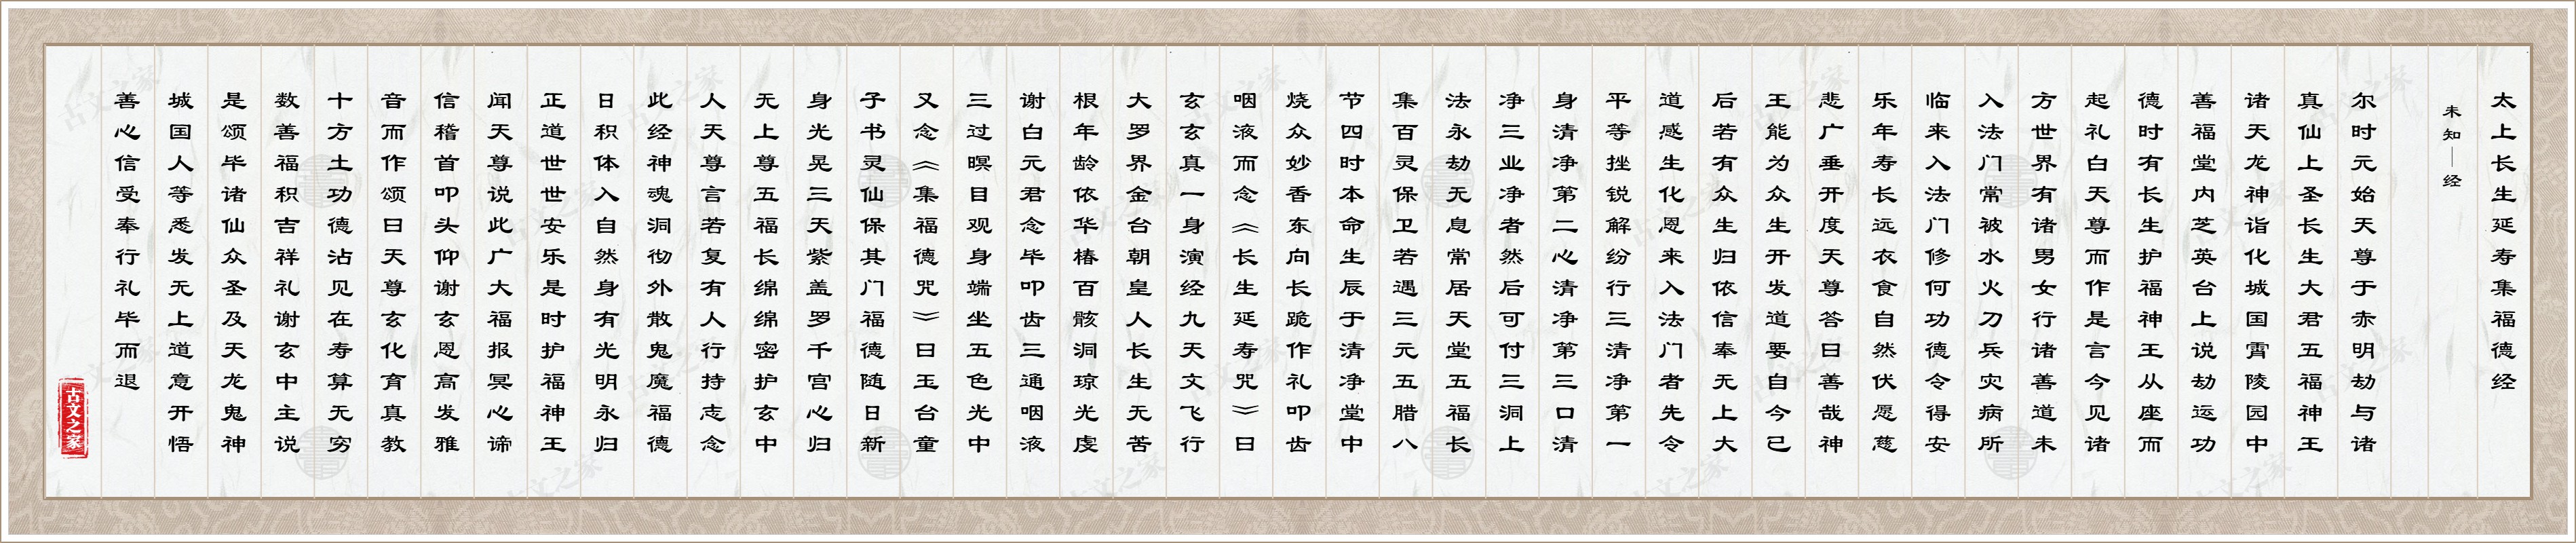 太上长生延寿集福德经
未知｜经
尔时元始天尊于赤明劫与诸
真仙上圣长生大君五福神王
诸天龙神诣化城国霄陵园中
善福堂内芝英台上说劫运功
德时有长生护福神王从座而
起礼白天尊而作是言今见诸
方世界有诸男女行诸善道未
入法门常被水火刀兵灾病所
临来入法门修何功德令得安
乐年寿长远衣食自然伏愿慈
悲广垂开度天尊答曰善哉神
王能为众生开发道要自今已
后若有众生归依信奉无上大
道感生化恩来入法门者先令
平等挫锐解纷行三清净第一
身清净第二心清净第三口清
净三业净者然后可付三洞上
法永劫无息常居天堂五福长
集百灵保卫若遇三元五腊八
节四时本命生辰于清净堂中
烧众妙香东向长跪作礼叩齿
咽液而念《长生延寿咒》曰
玄玄真一身演经九天文飞行
大罗界金台朝皇人长生无苦
根年龄依华椿百骸洞琼光虔
谢白元君念毕叩齿三通咽液
三过暝目观身端坐五色光中
又念《集福德咒》曰玉台童
子书灵仙保其门福德随日新
身光晃三天紫盖罗千宫心归
无上尊五福长绵绵密护玄中
人天尊言若复有人行持志念
此经神魂洞彻外散鬼魔福德
日积体入自然身有光明永归
正道世世安乐是时护福神王
闻天尊说此广大福报冥心谛
信稽首叩头仰谢玄恩高发雅
音而作颂曰天尊玄化育真教
十方土功德沾见在寿算无穷
数善福积吉祥礼谢玄中主说
是颂毕诸仙众圣及天龙鬼神
城国人等悉发无上道意开悟
善心信受奉行礼毕而退
古文之家